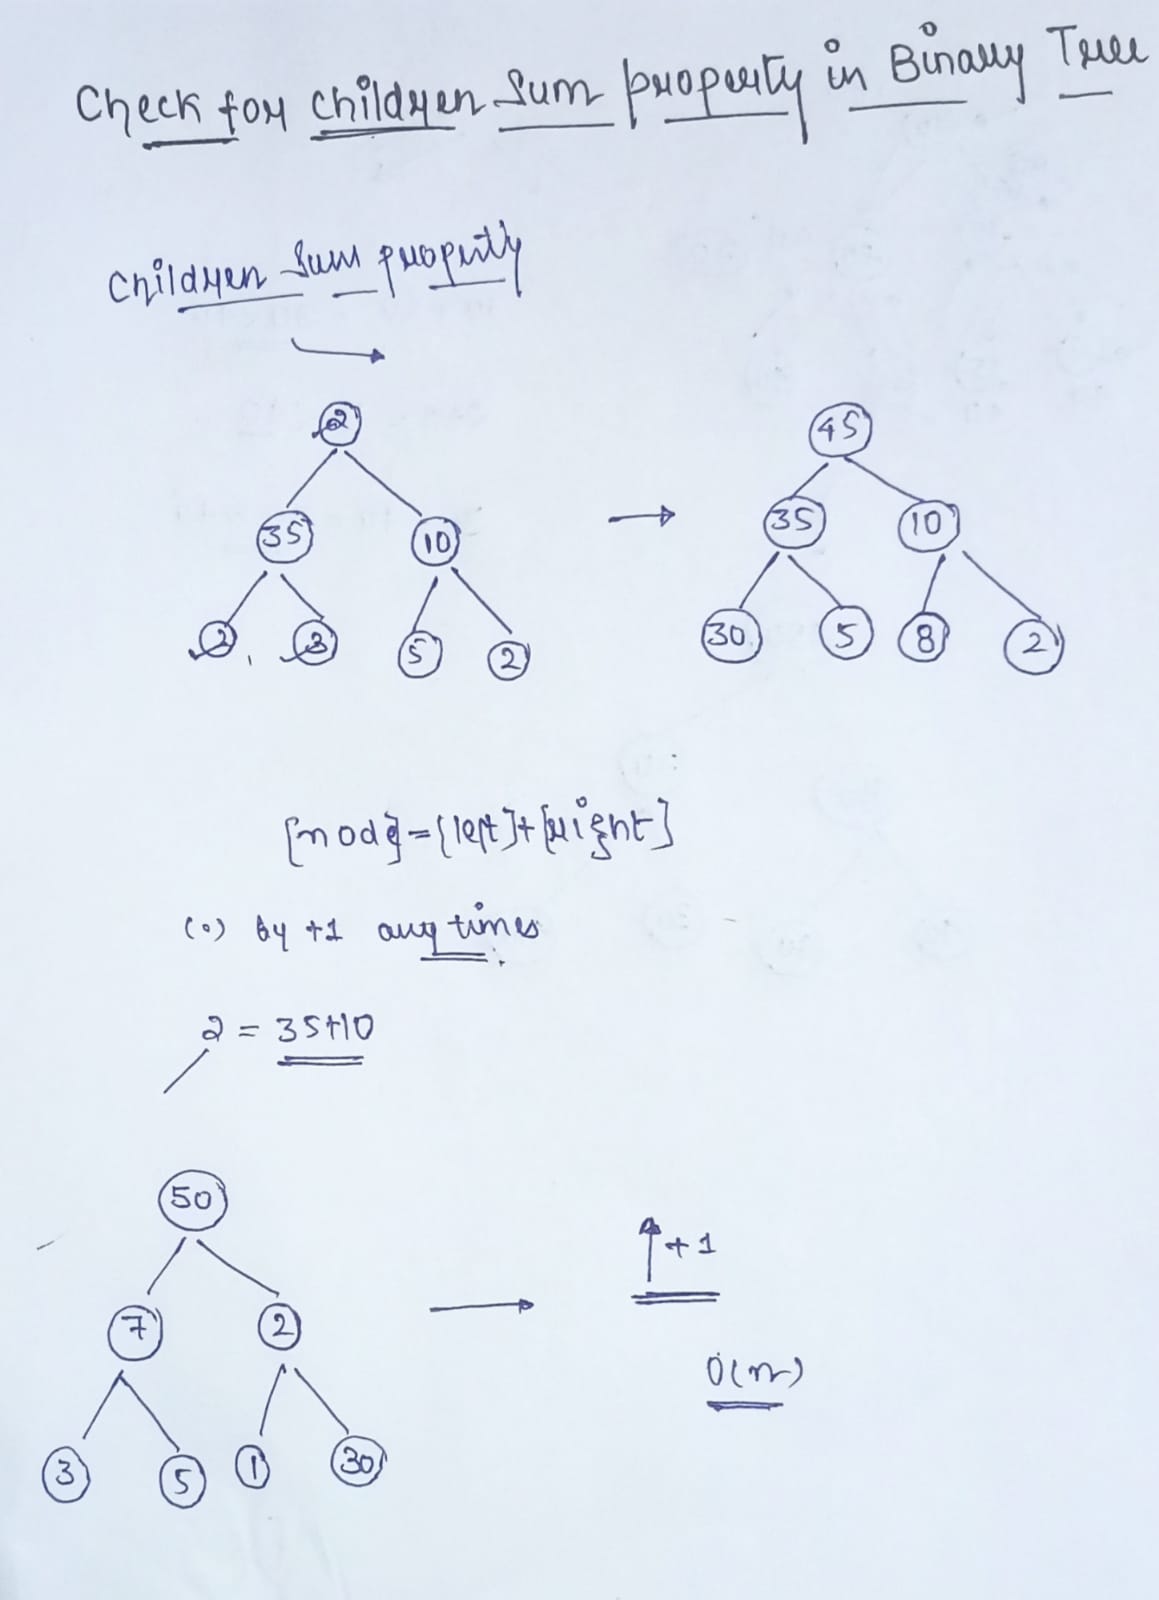 Check for children Sum property in Binary Tree
Children Sum property
2
45
35
10
35
10
2
3
5
2
30
5
8
2
[node]={left]+[right]
(o) by +1 any times
2 = 35+10
50
7
2
+1
O(n)
3
5
1
30